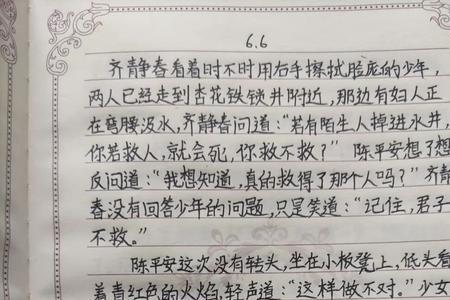 6.6
齐静春看着时不时用右手擦拭脸庞的少年,
两人已经走到杏花铁锁井附近,那边有妇人正
在弯腰汲水,齐静春问道:“若有陌生人掉进水井,
你若救人,就会死,你救不救?” 陈平安想了想
反问道:“我想知道,真的救得了那个人吗?”齐静
春没有回答少年的问题,只是笑道:“记住,君子
不救。”
陈平安这次没有转头,坐在小板凳上,低头看
着青红色的火焰,轻声道:“这样做不对。”少女